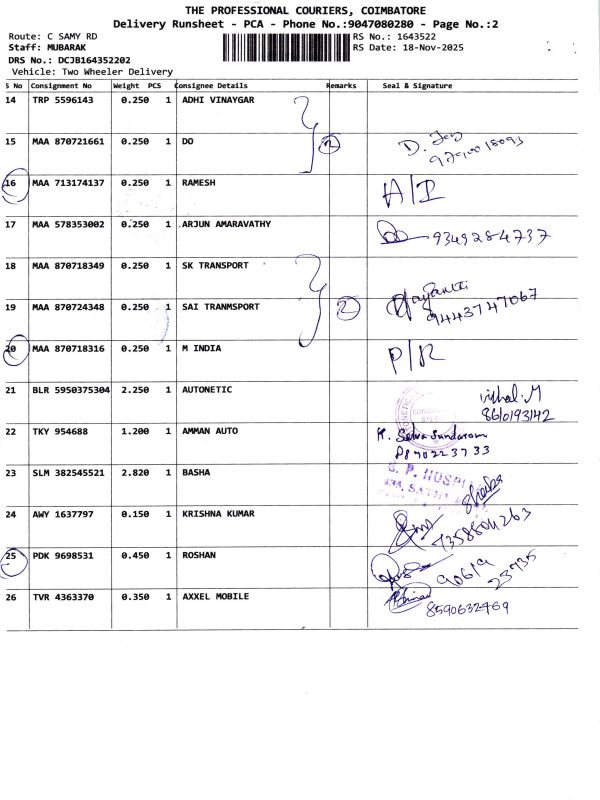 THE PROFESSIONAL COURIERS, COIMBATORE
Delivery Runsheet - PCA - Phone No.:9047080280 - Page No.:2
Route: C SAMY RD
RS No.: 1643522
Staff: MUBARAK
RS Date: 18-Nov-2025
DRS No.: DCJB164352202
Vehicle: Two Wheeler Delivery
S No Consignment No Weight PCS Consignee Details Remarks Seal & Signature
14 TRP 5596143 0.250 1 ADHI VINAYGAR
15 MAA 870721661 0.250 1 DO 2 D. Joy
16 MAA 713174137 0.250 1 RAMESH A/I
17 MAA 578353002 0.250 1 ARJUN AMARAVATHY 9349284737
18 MAA 870718349 0.250 1 SK TRANSPORT
19 MAA 870724348 0.250 1 SAI TRANMSPORT 2 Jayanthi
9443747067
20 MAA 870718316 0.250 1 M INDIA P/R
21 BLR 5950375304 2.250 1 AUTONETIC vishal.M
8610193142
22 TKY 954688 1.200 1 AMMAN AUTO K. Selva Sundaram
23 SLM 382545521 2.820 1 BASHA G. P. HOSPI
24 AWY 1637797 0.150 1 KRISHNA KUMAR 7358804263
25 PDK 9698531 0.450 1 ROSHAN 90619
23735
26 TVR 4363370 0.350 1 AXXEL MOBILE 8590632469